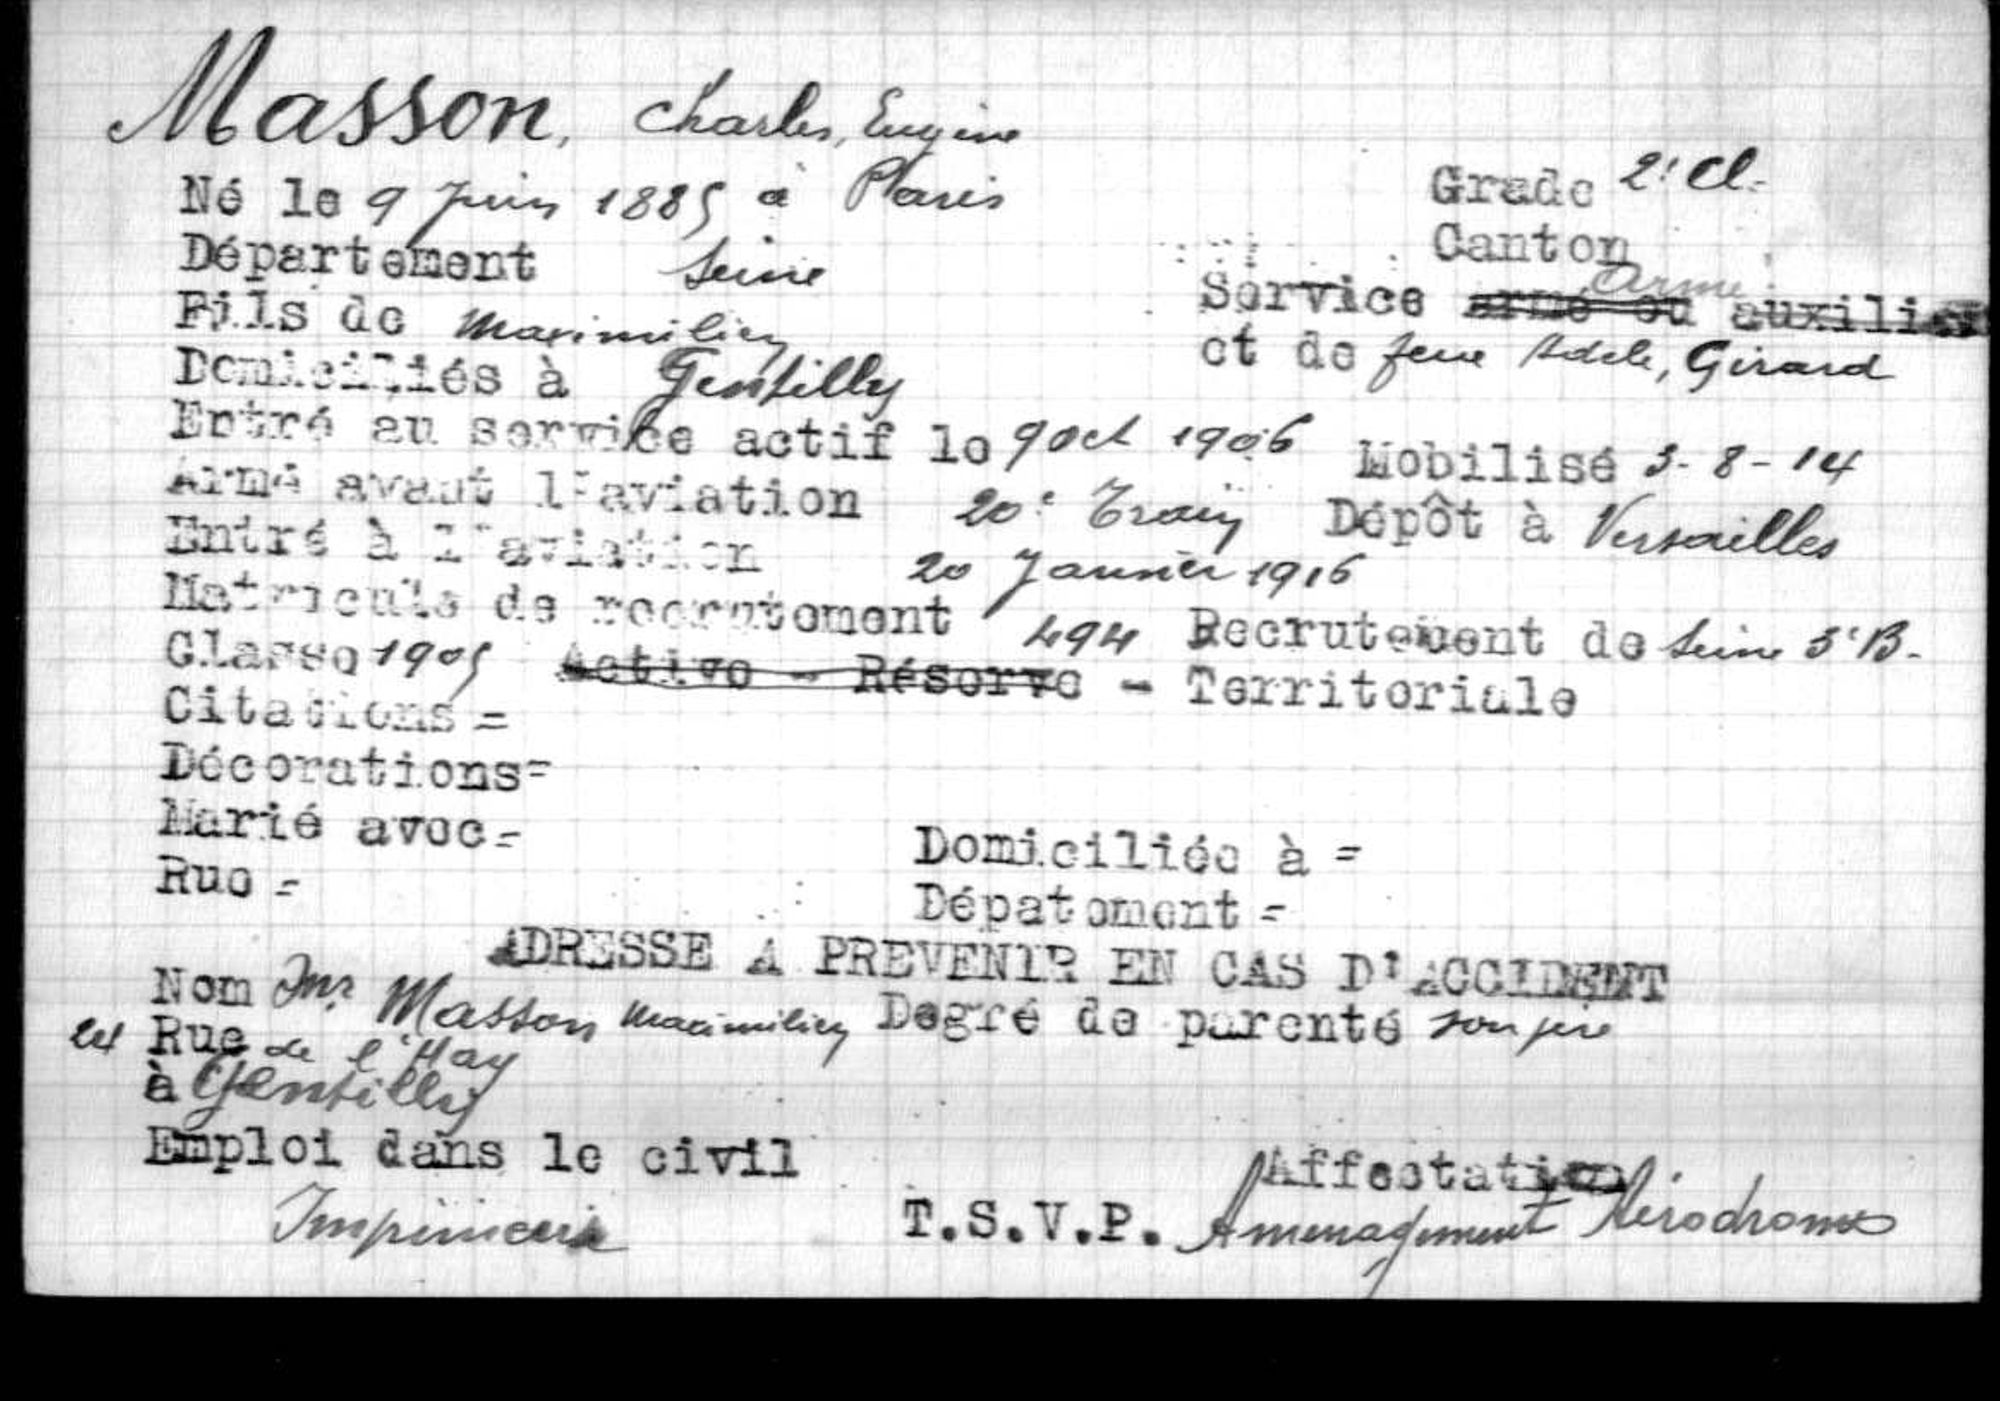 Masson, Charles, Eugène
Né le 9 Juin 1885 à Paris
Grade 2e Cl.
Département Seine
Canton
Fils de Maximilien
Service armé ou auxiliai armé
Domiciliés à Gentilly
et de feue Adèle, Girard
Entré au service actif le 9 Oct 1906 Mobilisé 3-8-14
Arme avant l'aviation 20e Train Dépôt à Versailles
Entré à l'aviation 20 Janvier 1916
Matricule de recrutement 494 Recrutement de Seine 3e B.
Classe 1905 Active - Réserve - Territoriale
Citations =
Décorations=
Marié avec=
Domiciliée à =
Rue =
Dépatement =
ADRESSE A PREVENIR EN CAS D'ACCIDENT
Nom Mr Masson Maximilien Degré de parenté son père
Rue de l'Hay
à Gentilly
Emploi dans le civil
Affectation
T.S.V.P. Aménagement Aérodromes